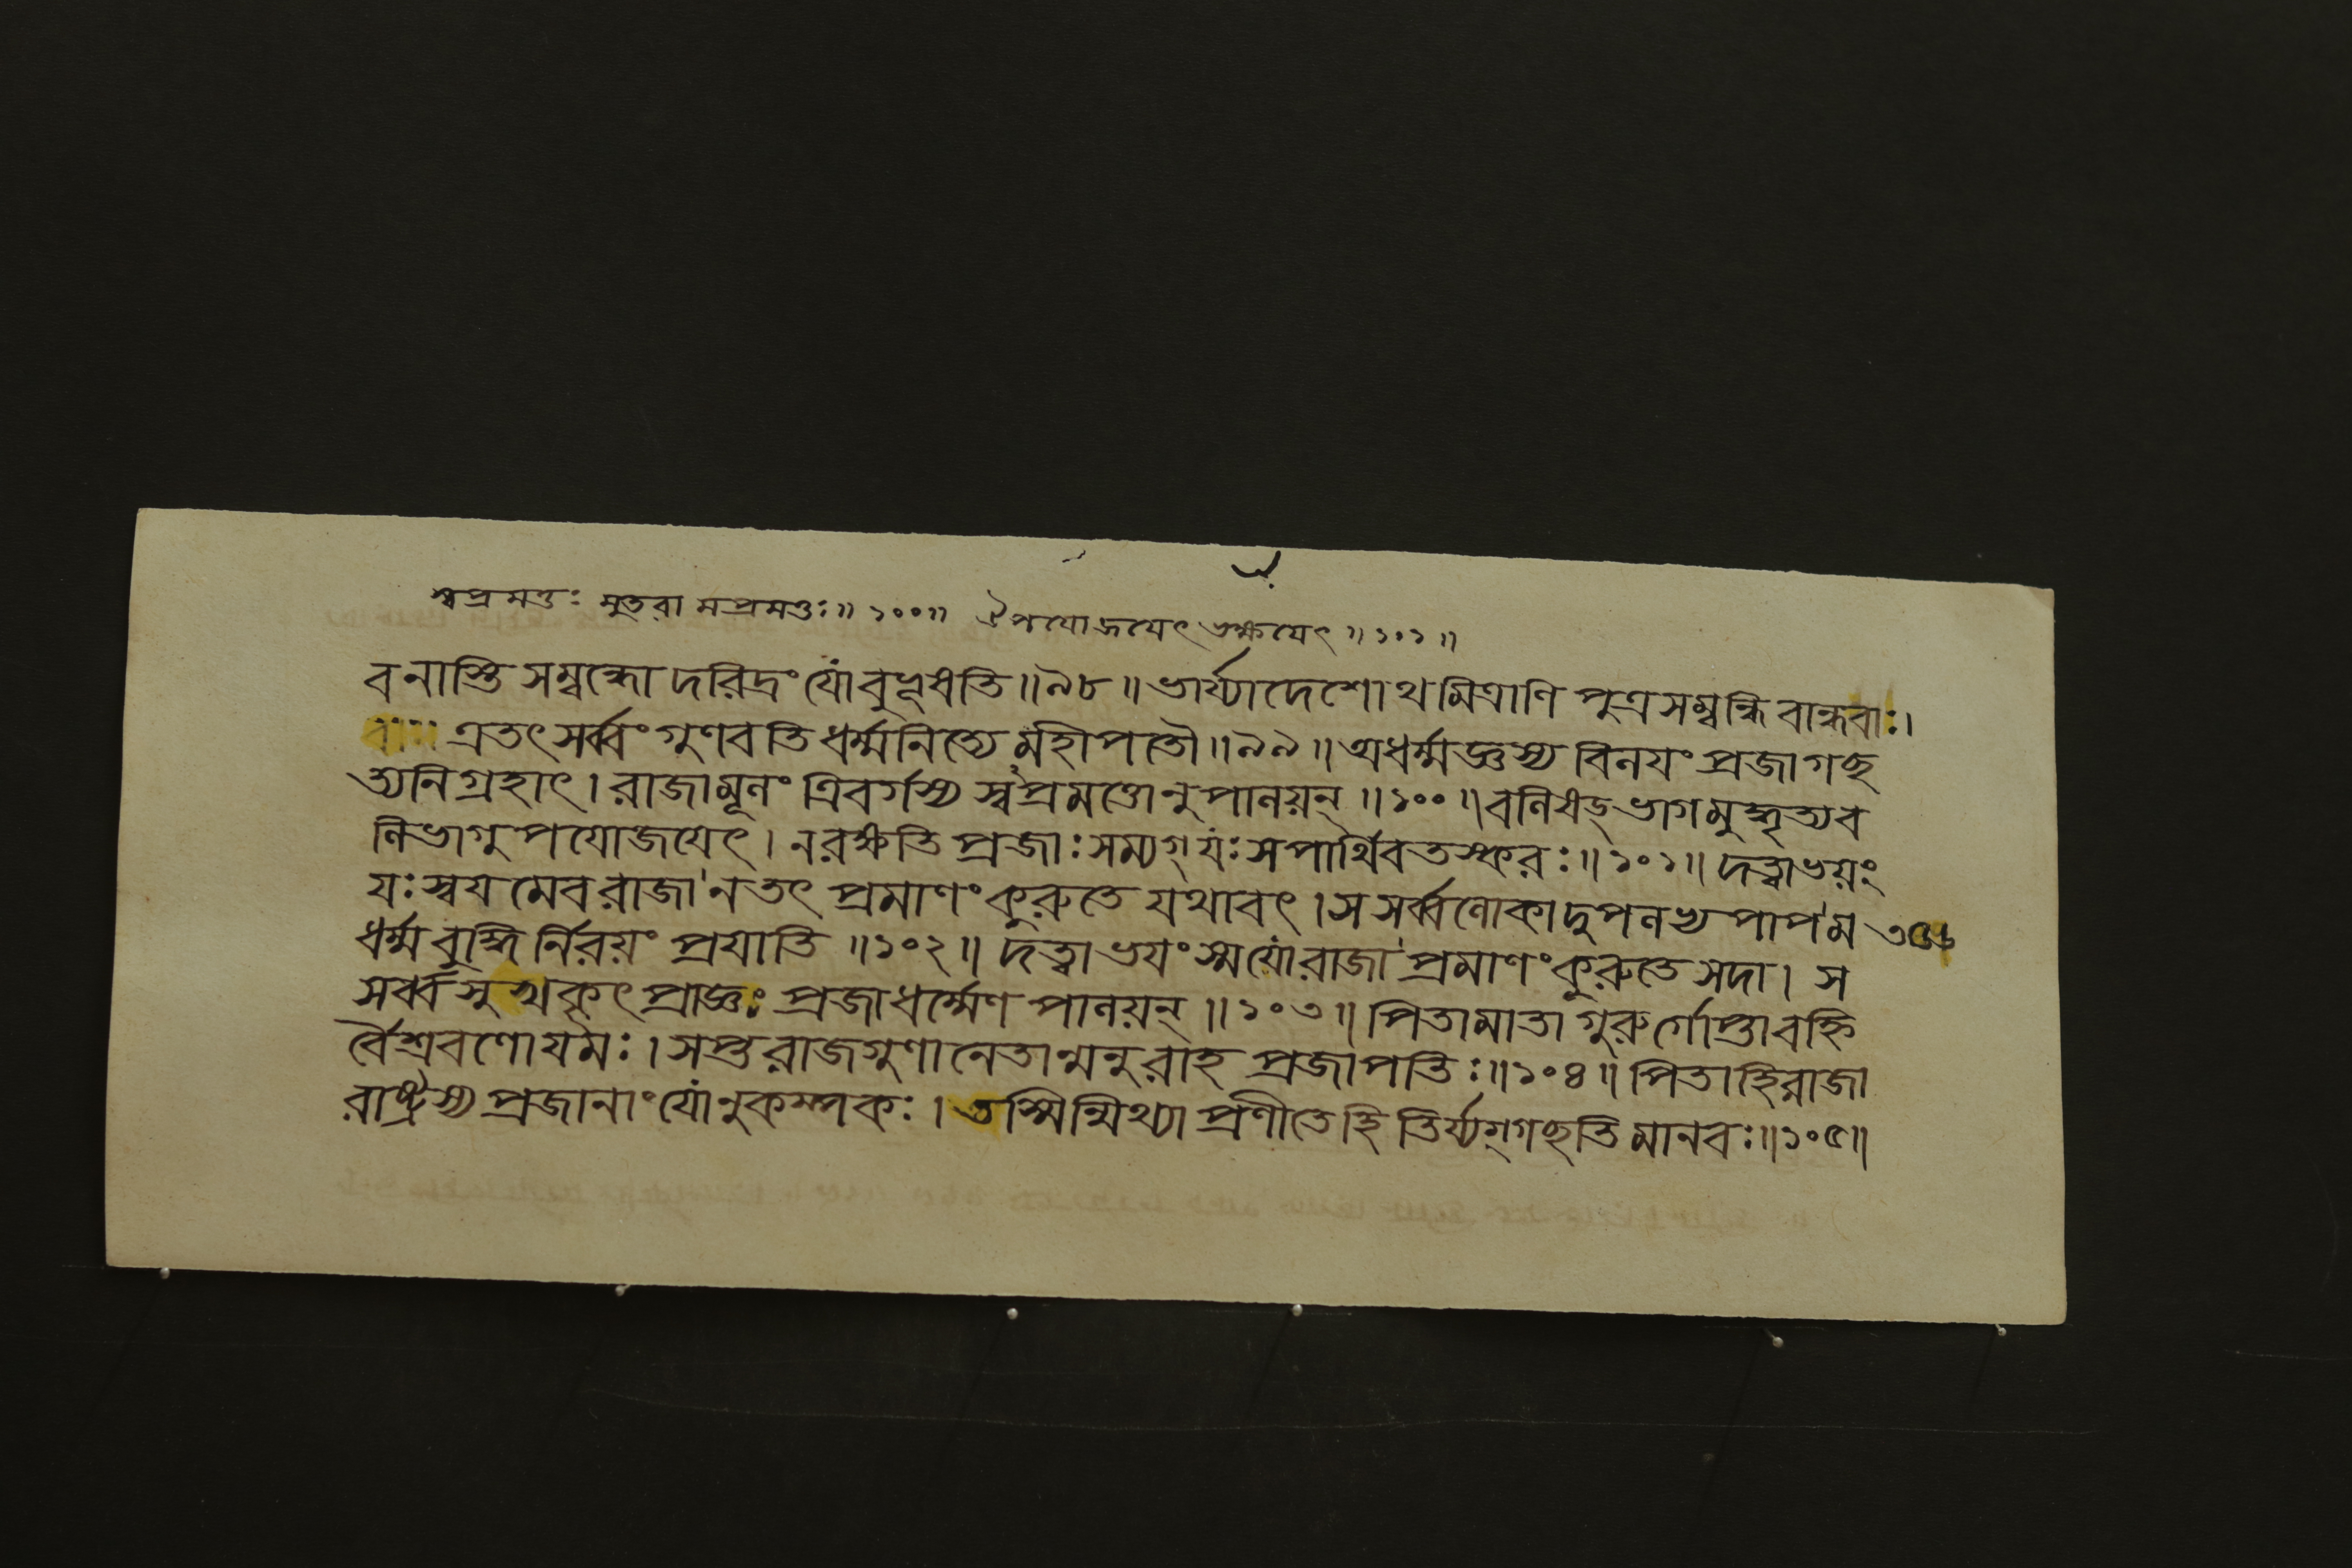 স্বপ্রমত্তঃ সুতরামপ্রমত্তঃ॥ ১০০॥ ঐপযোজযেৎ ভক্ষযেৎ॥ ১০১॥
বনাস্তি সম্বন্ধো দরিদ্রং যোবুভূষতি॥৯৮॥ ভার্য্যাদেশোথমিত্রাণি পুত্রসম্বন্ধিবান্ধবাঃ।
এতৎ সর্ব্বং গুণবতি ধর্ম্মনিত্যে মহীপতৌ॥৯৯॥ অধর্ম্মজ্ঞস্য বিনযং প্রজাগছ
ত্যনিগ্রহাৎ। রাজামূলং ত্রিবর্গস্য স্বপ্রমত্তোনুপালয়ন্॥১০০॥ বলিষড্ভাগমুদ্ধৃত্যব
লিভাগুপযোজযেৎ। নরক্ষতি প্রজাঃ সম্যগ্ যঃ সপার্থিবতস্করঃ॥১০১॥ দত্বাভয়ং
যঃ স্বযমেবরাজা নতৎ প্রমাণং কুরুতে যথাবৎ। সসর্ব্বলোকাদুপলভ্য পাপম
ধর্ম্মবুদ্ধির্নিরয়ং প্রযাতি॥১০২॥ দত্বাভযংস্মযোরাজা প্রমাণং কুরুতে সদা। স
সর্ব্বসুখকৃৎ প্রাজ্ঞঃ প্রজাধর্ম্মেণ পালয়ন্॥১০৩॥ পিতামাতা গুরুর্গোপ্তাবহ্নি
র্বৈশ্রবণোযমঃ। সপ্তরাজগুণানেতান্মনুরাহ প্রজাপতিঃ॥১০৪॥ পিতাহিরাজা
রাষ্ট্রস্য প্রজানাং যোনুকম্পকঃ। তস্মিন্মিথ্যা প্রণীতেহি তির্য্যগ্গছতি মানবঃ॥১০৫॥